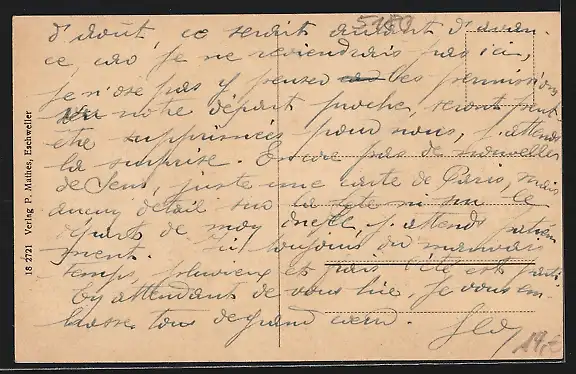 5180
d'août, ce serait autant d'avan-
ce, car je ne reviendrais pas ici,
je n'ose pas y penser les permissions
vu notre départ proche, seront peut-
être supprimées pour nous, j'attends
la surprise. Encore pas de nouvelles
de Sens, juste une carte de Paris, mais
aucun détail sur la fête ni sur le
départ de moy j'attends patiem
ment. Ici toujours du mauvais
temps, pluvieux et frais l'été est parti
En attendant de vous lire, je vous em-
brasse tous de grand cœur.
18 2721 Verlag P. Mathes, Eschweiler